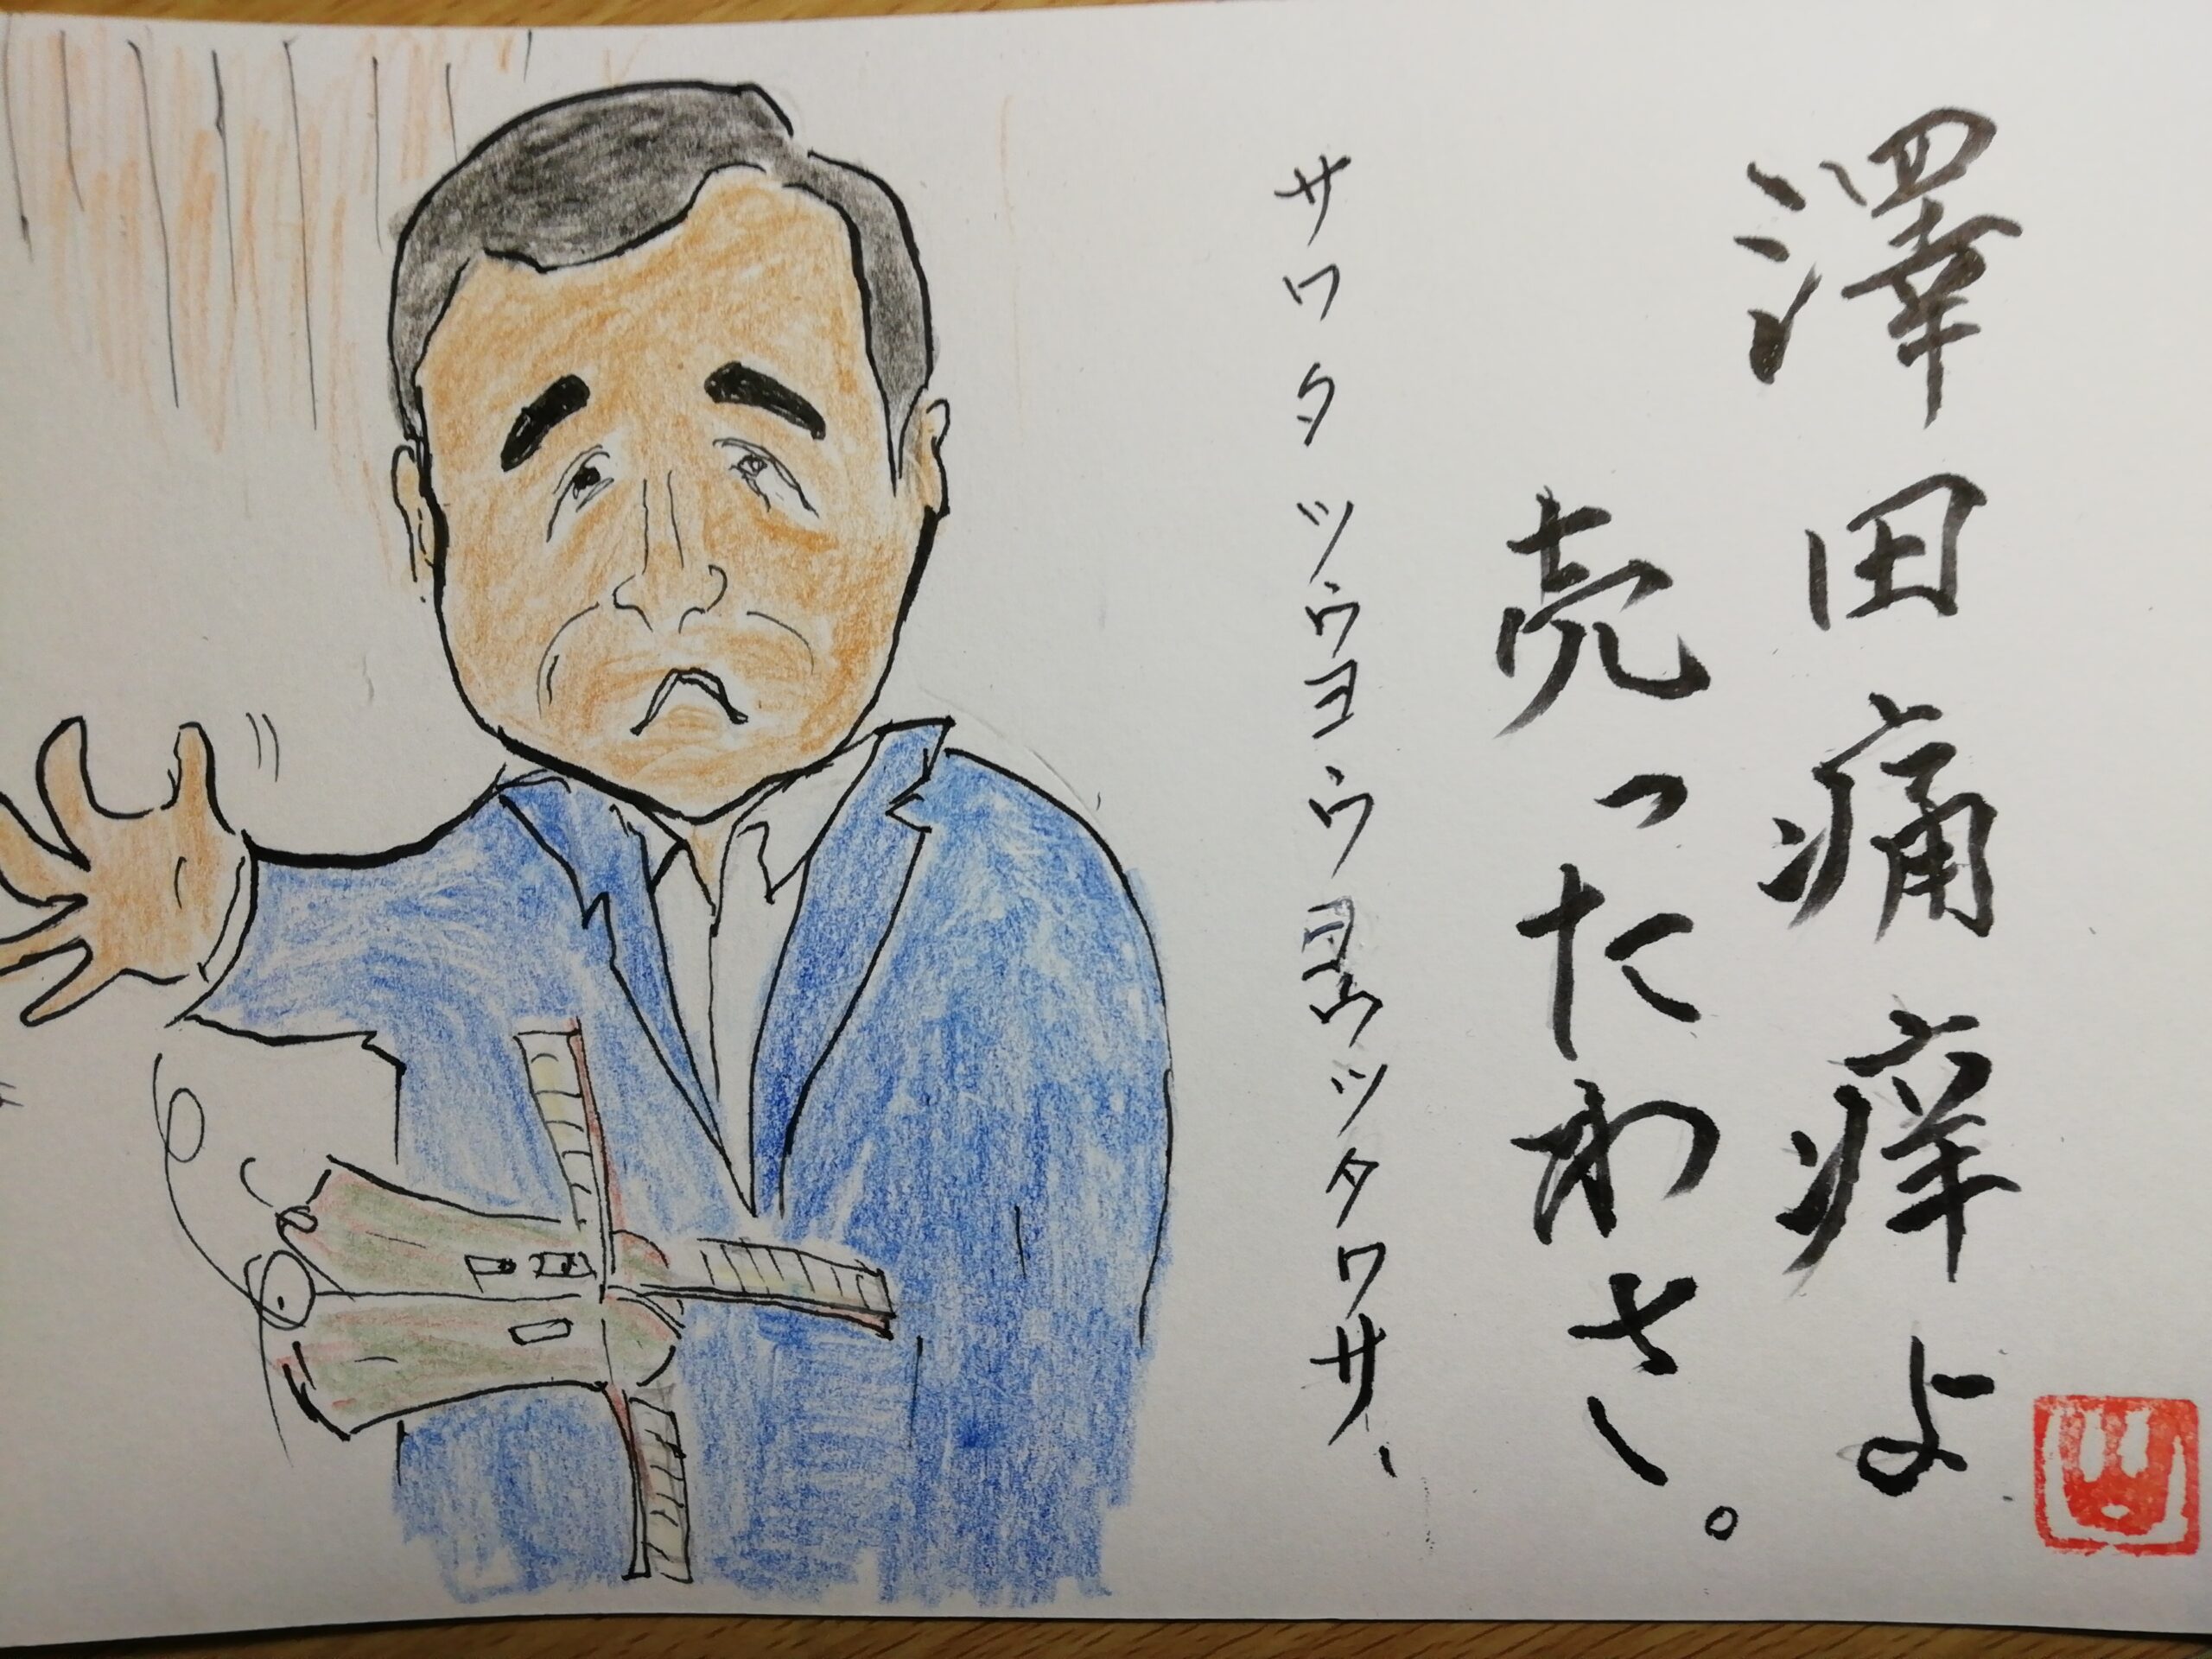 澤田痛痒よ
売ったわさ。
サワタツウヨウヨウツタワサ、